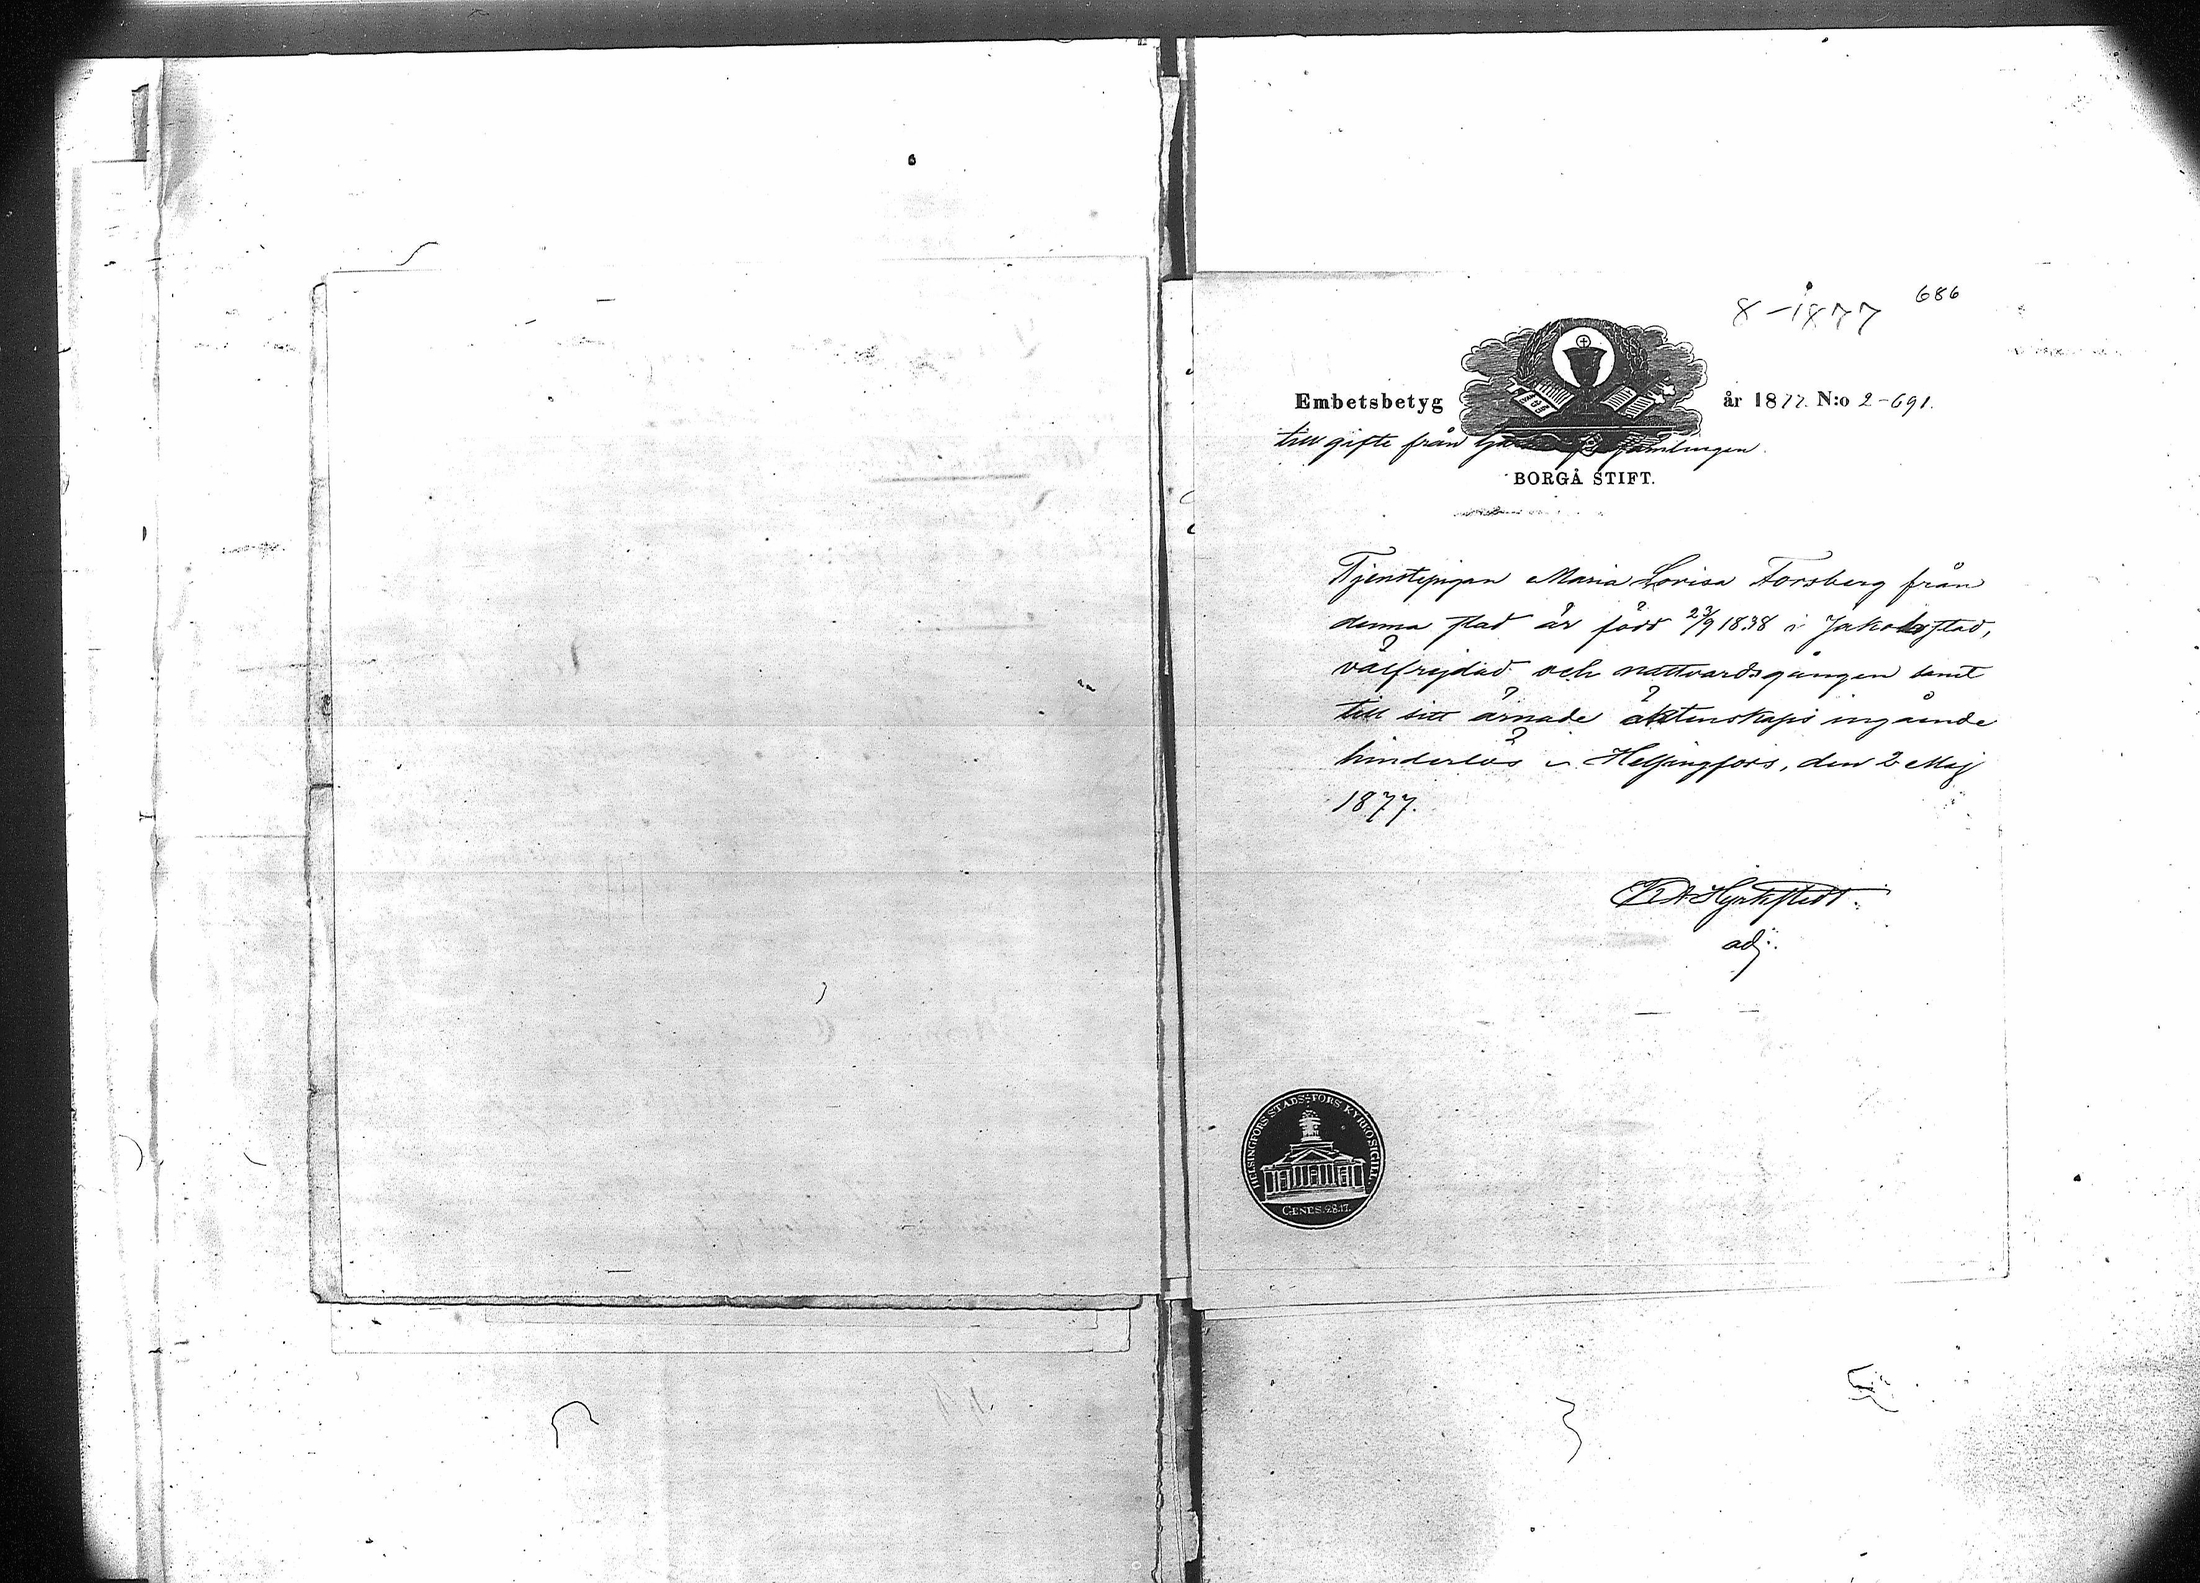 686
8-1877
Embetsbetyg år 1877. N:o 2-691.
till gifte från församlingen
BORGÅ STIFT.
Tjenstepigan Maria Lovisa Forsberg från
denna stad är född 23/9 1838 i Jakobstad,
välfrejdad och nattvardsgången samt
till sitt ärnade äktenskaps ingående
hinderlös. Helsingfors, den 2 Maj
1877.
adj.
HELSINGFORS STADS FÖRS. KYRKOSIGILL.
GENES. 28.17.